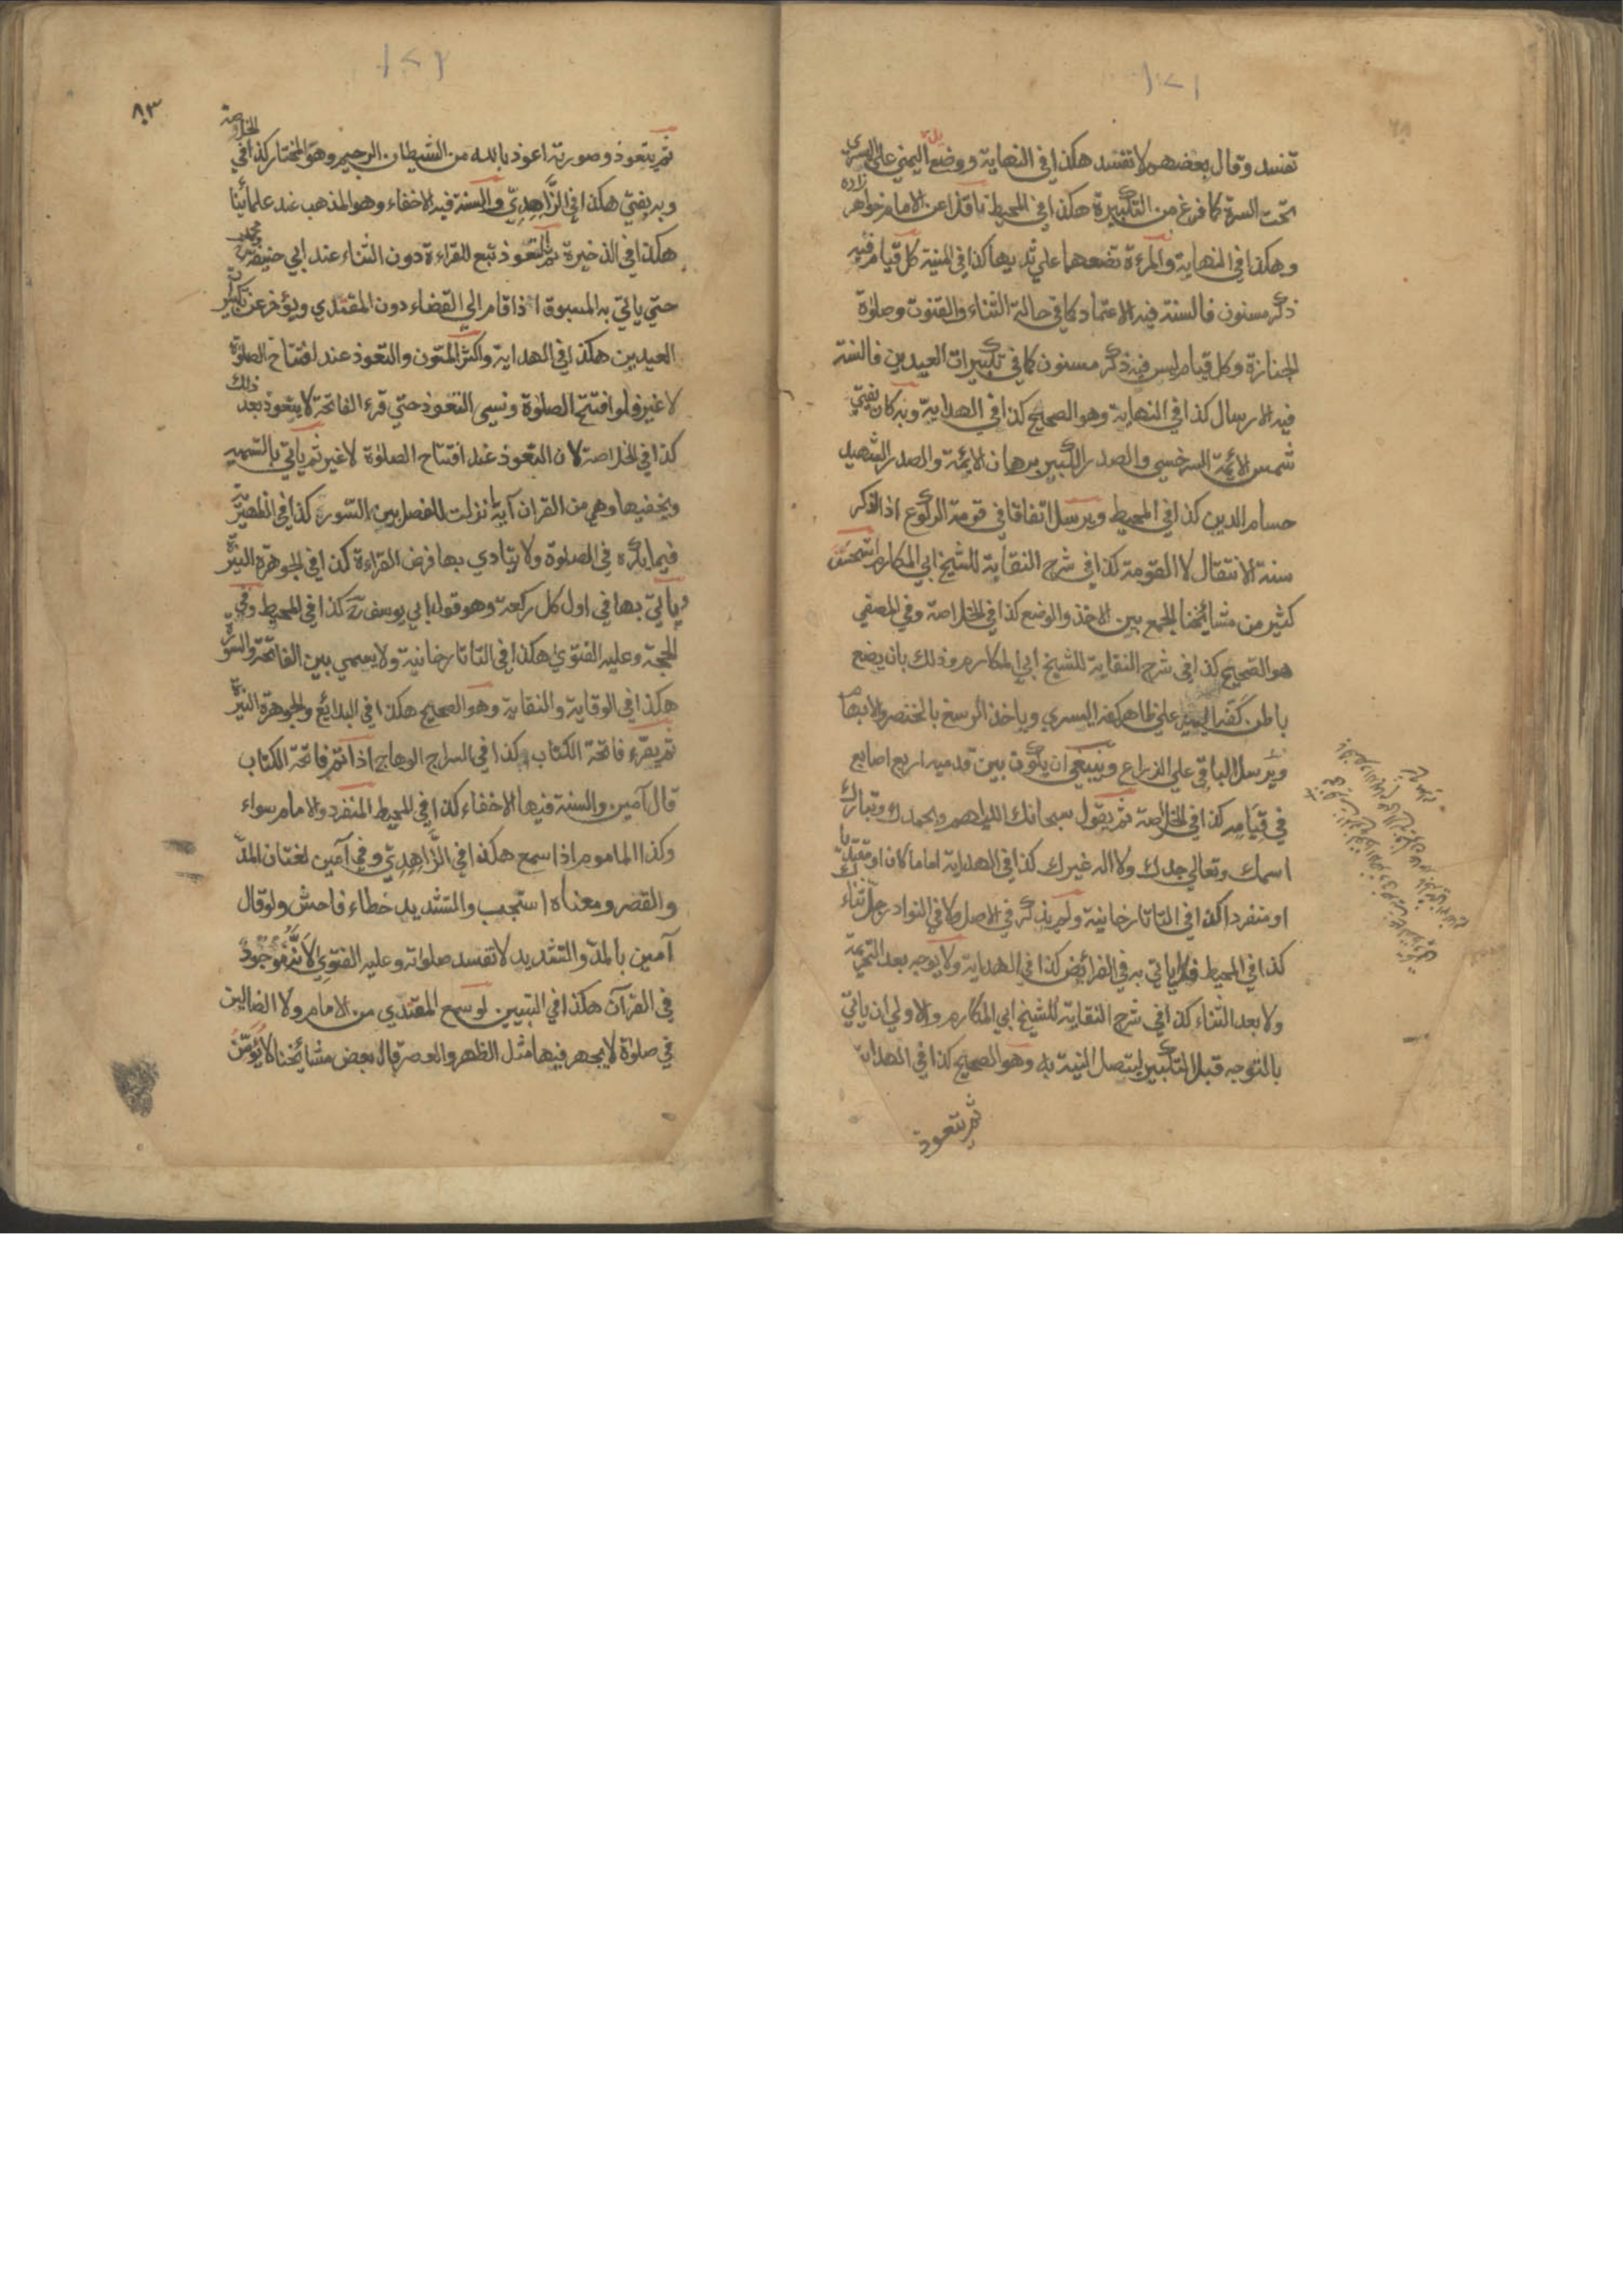 تفسد وقال بعضهم لا تفسد هكذا في النهاية ووضع اليمني علي اليسري
تحت السرة كما فرغ من التكبيرة هكذا في المحيط ناقلا عن الامام خواهر زاده
وهكذا في النهاية والمرءة تضعهما علي ثدييها كذا في المنية كل قيام فيه
ذكر مسنون فالسنة فيه الاعتماد كما في حالة الثناء والقنوت وصلوة
الجنازة وكل قيام ليس فيه ذكر مسنون كما في تكبيرات العيدين فالسنة
فيه الارسال كذا في النهاية وهو الصحيح كذا في الهداية وبه كان يفتي
شمس الائمة السرخسي والصدر الكبير برهان الايمة والصدر الشهيد
حسام الدين كذا في المحيط ويرسل اتفاقا في قومة الركوع اذ الذكر
سنة الانتقال لا القومة كذا في شرح النقاية للشيخ ابي المكارم استحسن
كثير من مشائخنا الجمع بين الاخذ والوضع كذا في الخلاصة وفي المصفي
هو الصحيح كذا في شرح النقاية للشيخ ابي المكارم وذلك بان يضع
باطن كفه اليمين علي ظاهر كفه اليسري وياخذ الرسغ بالخنصر والابهام
ويرسل الباقي علي الذراع وينبغي ان يكون بين قدميه اربع اصابع
في قيامه كذا في الخلاصة ثم يقول سبحانك اللهم وبحمدك وتبارك
اسمك وتعالي جدك ولا اله غيرك كذا في الهداية اماما كان او مقتديا
او منفردا كذا في التاتارخانية ولم يذكر في الاصل ولا في النوادر وجل ثناءك
كذا في المحيط فلا ياتي به في الفرائض كذا في الهداية ولا يوجه بعد التحريمة
ولا بعد الثناء كذا في شرح النقاية للشيخ ابي المكارم والاولي ان ياتي
بالتوجه قبل التكبير ليتصل النية به وهو الصحيح كذا في الهداية
ثم يتعوذ
٨٣
ثم يتعوذ وصورته اعوذ بالله من الشيطان الرجيم وهو المختار كذا في الخلاصة
وبه يفتي هكذا في الزاهدي والسنة فيه الاخفاء وهو المذهب عند علمائنا
هكذا في الذخيرة ثم التعوذ تبع للقراءة دون الثناء عند ابي حنيفة ومحمد
حتي ياتي به المسبوق اذا قام الي القضاء دون المقتدي ويؤخر عن تكبيرات
العيدين هكذا في الهداية واكثر المتون والتعوذ عند افتتاح الصلوة
لا غير فلو افتتح الصلوة ونسي التعوذ حتي قرء الفاتحة لا يتعوذ بعد ذلك
كذا في الخلاصة لان التعوذ عند افتتاح الصلوة لا غير ثم ياتي بالتسمية
ويخفيها وهي من القران آية نزلت للفصل بين السور كذا في الظهيرية
فيما يكره في الصلوة ولا يتادي بها فرض القراءة كذا في الجوهرة النيرة
وياتي بها في اول كل ركعة وهو قول ابي يوسف رح كذا في المحيط وفي
الحجة وعليه الفتوي هكذا في التاتارخانية ولا يسمي بين الفاتحة والسورة
هكذا في الوقاية والنقاية وهو الصحيح هكذا في البدائع والجوهرة النيرة
ثم يقرء فاتحة الكتاب كذا في السراج الوهاج اذا تم فاتحة الكتاب
قال آمين والسنة فيها الاخفاء كذا في المحيط المنفرد والامام سواء
وكذا الماموم اذا سمع هكذا في الزاهدي وفي آمين لغتان المد
والقصر ومعناه استجب والتشديد خطاء فاحش ولو قال
آمين بالمد والتشديد لا تفسد صلوته وعليه الفتوي لانه موجود
في القرآن هكذا في التبيين لو سمع المقتدي من الامام ولا الضالين
في صلوة لا يجهر فيها مثل الظهر والعصر قال بعض مشائخنا لا يؤمن